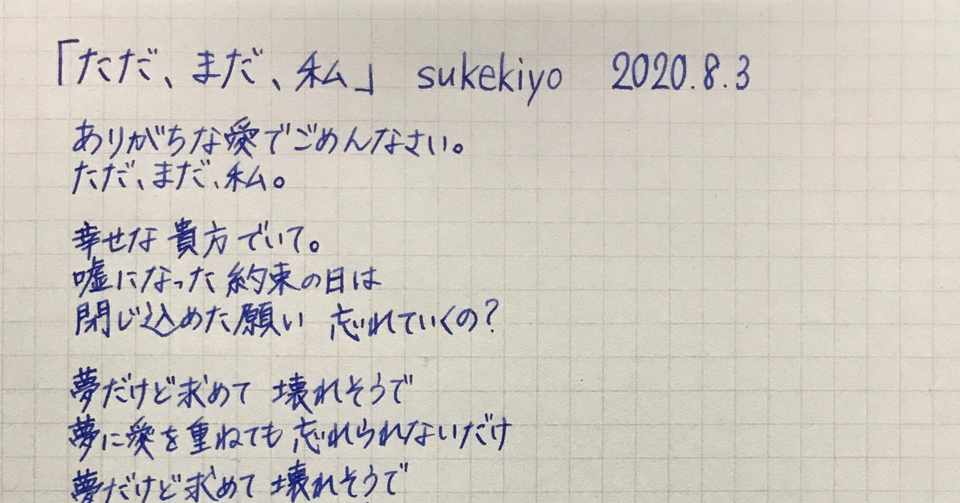 「ただ、まだ、私」 sukekiyo 2020.8.3
ありがちな愛でごめんなさい。
ただ、まだ、私。
幸せな貴方でいて。
嘘になった約束の日は
閉じ込めた願い 忘れていくの?
夢だけど求めて 壊れそうで
夢に愛を重ねても 忘れられないだけ
夢だけど求めて 壊れそうで